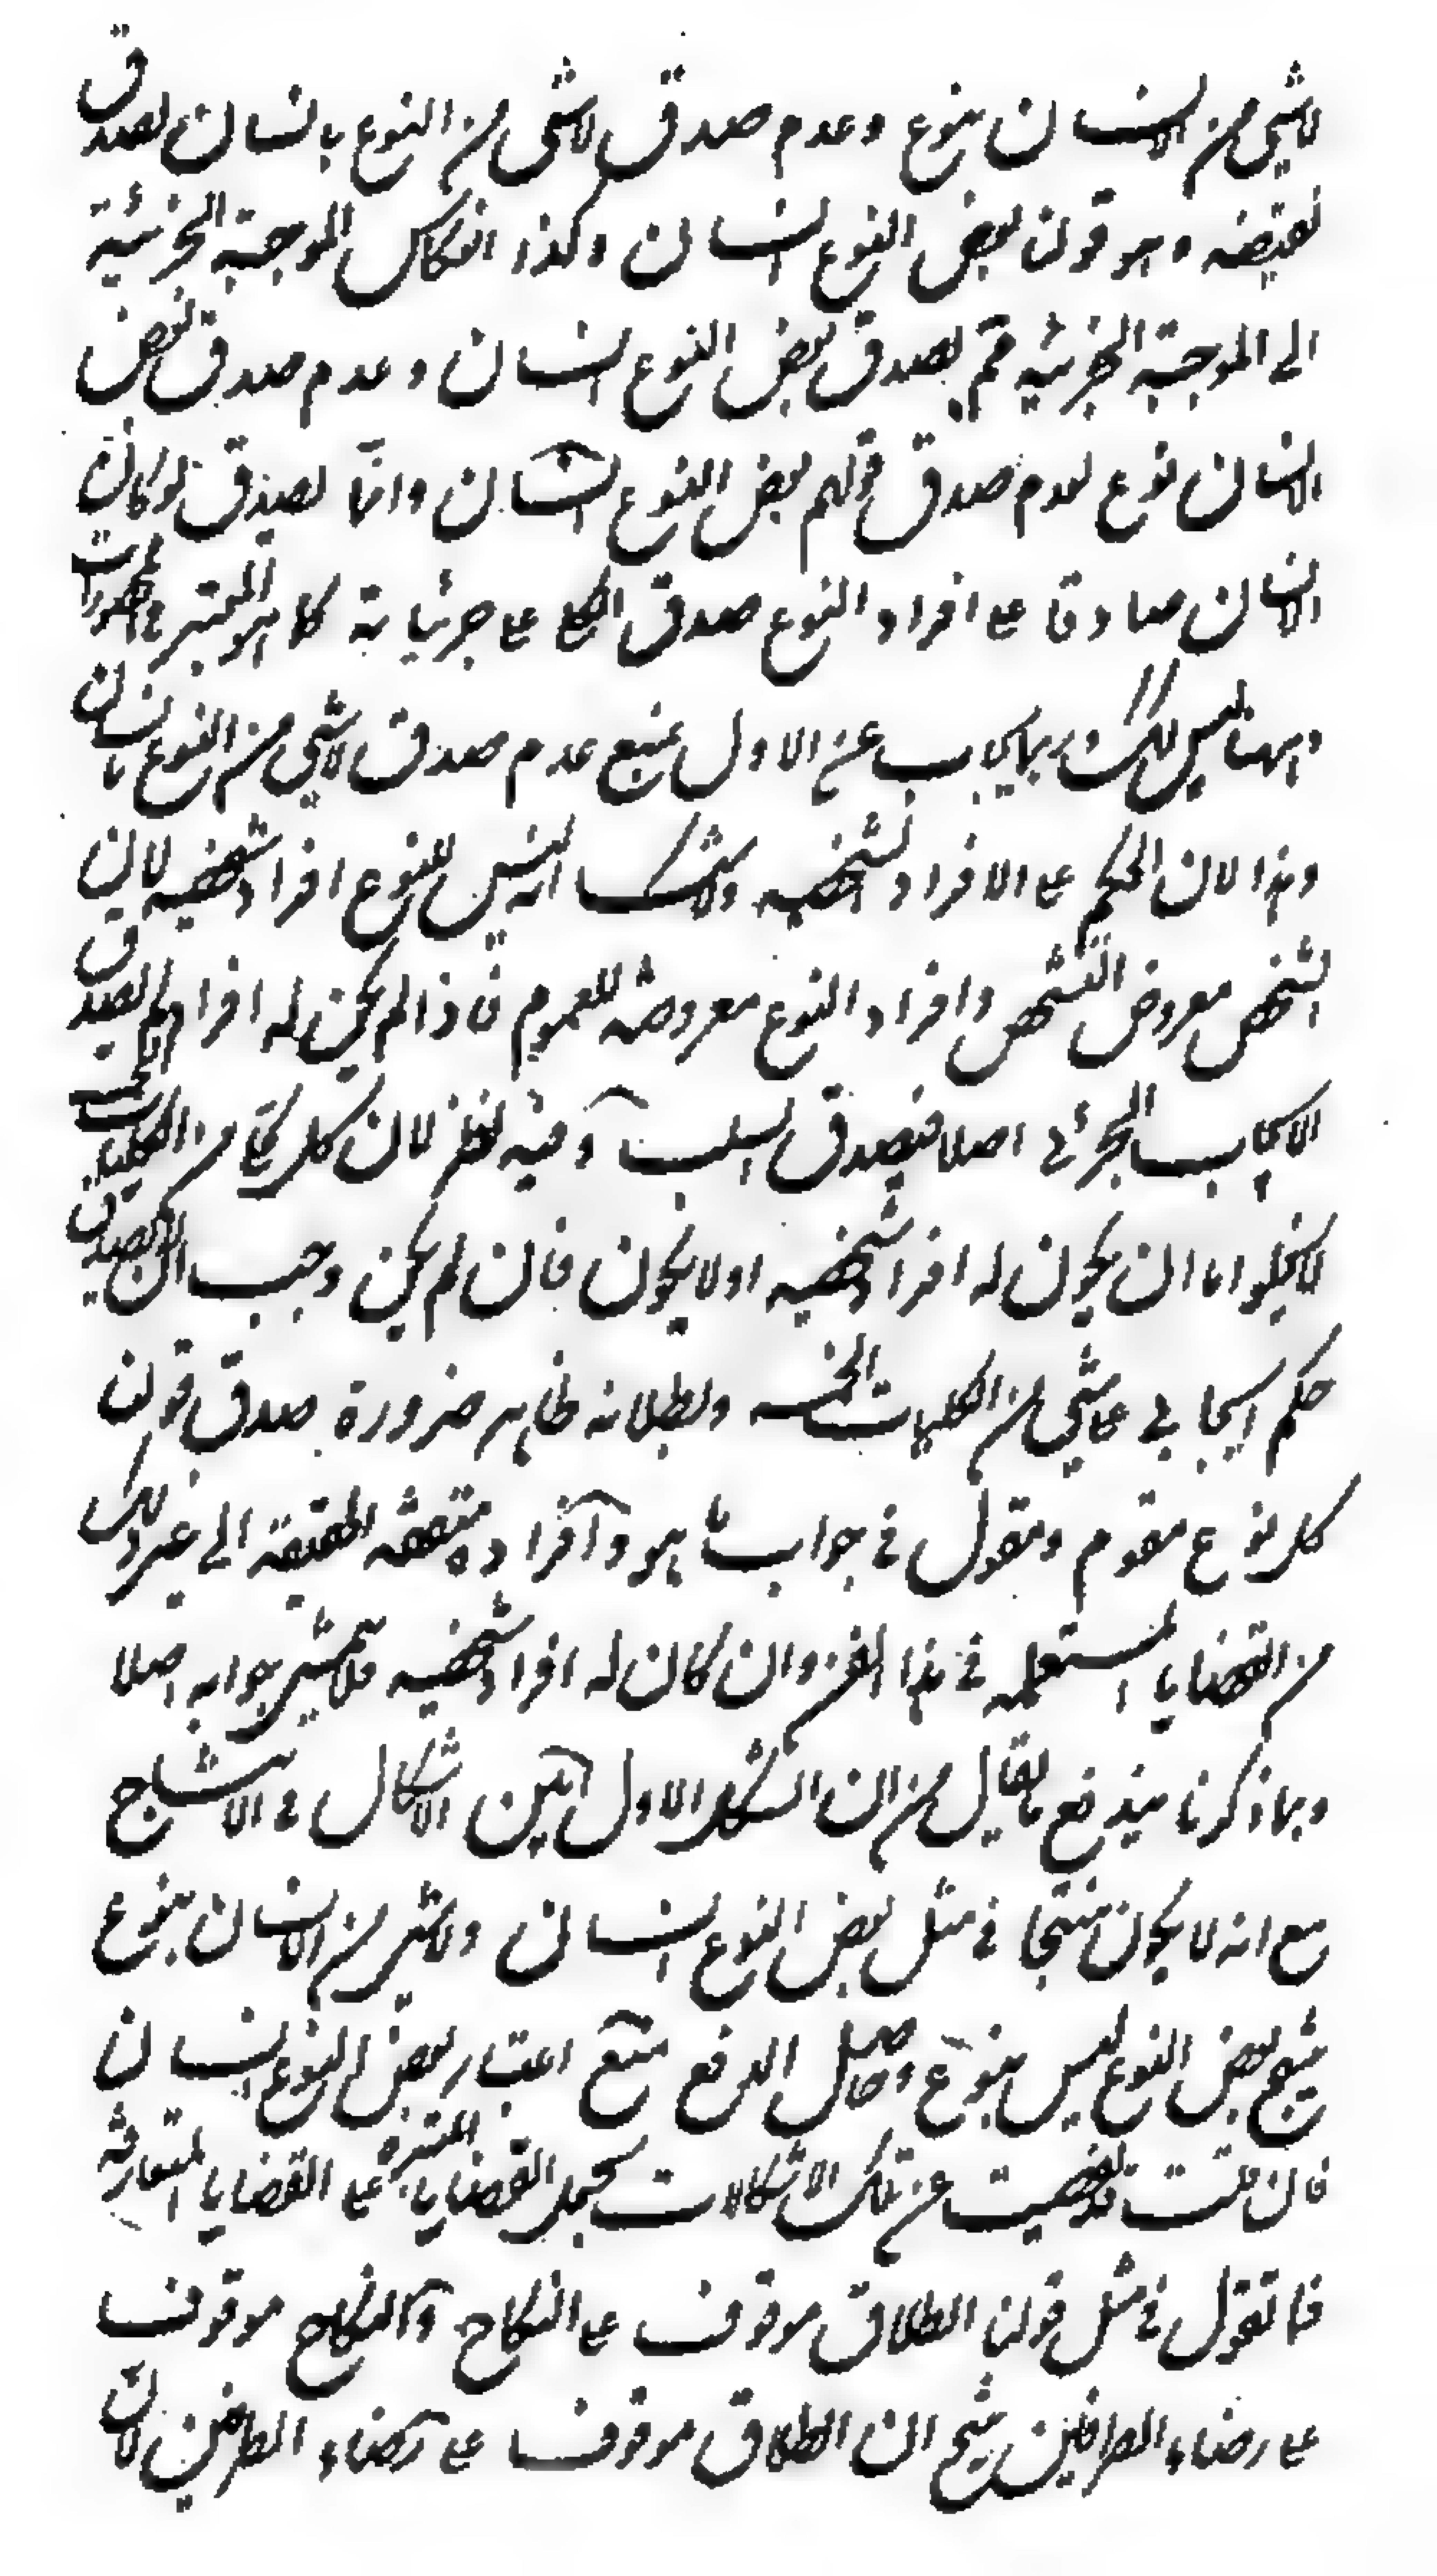 لا شئ من الانسان بنوع وعدم صدق لا شئ من النوع بانسان لصدق
نقيضه وهو قولنا بعض النوع انسان وكذا انعكاس الموجبة الجزئية
الى الموجبة الجزئية قم لصدق بعض النوع انسان وعدم صدق بعض
الانسان نوع لعدم صدق قولهم بعض النوع انسان وانما يصدق لو كان
الانسان صادقا على افراد النوع صدق الكلى على جزئياته كما هو المعتبر فى المحصورات
وههنا ليس كذلك وربما يجاب عن الاول بمنع عدم صدق لا شئ من النوع بانسان
وهذا لان الحكم على الافراد الشخصيه ولا شك انه ليس للنوع افراد شخصيه لان
الشخص معروض التشخص وافراد النوع معروضة للعموم فاذا لم يكن له افراد لم يصدق
الايجاب الجزئى اصلا فيصدق السلب وفيه نظر لان كل كلى من الكليات الخمس
لا يخلو اما ان يكون له افراد شخصيه اولا يكون فان لم يكن وجب ان لا يصدق
حكم ايجابى على شئ من الكليات الخمسه وبطلانه ظاهر ضرورة صدق قولنا
كل نوع مقوم ومقول فى جواب ما هو وافراده متفقة الحقيقة الى غير ذلك
من القضايا المستعملة فى هذا الفن وان كان له افراد شخصيه فلا تمشى جوابه اصلا
وبما ذكرنا يندفع ما يقال من ان الشكل الاول ابين الاشكال فى الانتاج
مع انه لا يكون منتجا فى مثل بعض النوع انسان ولا شئ من الانسان بنوع
ينتج بعض النوع ليس بنوع وحاصل الدفع منع اعتبار بعض النوع انسان
فان قلت قد تفصيت عن تلك الاشكالات بحمل القضايا المعتبرة على القضايا المتعارفة
فما تقول فى مثل قولنا الطلاق موقوف على النكاح والنكاح موقوف
على رضاء الطرفين ينتج ان الطلاق موقوف على رضاء الطرفين لان